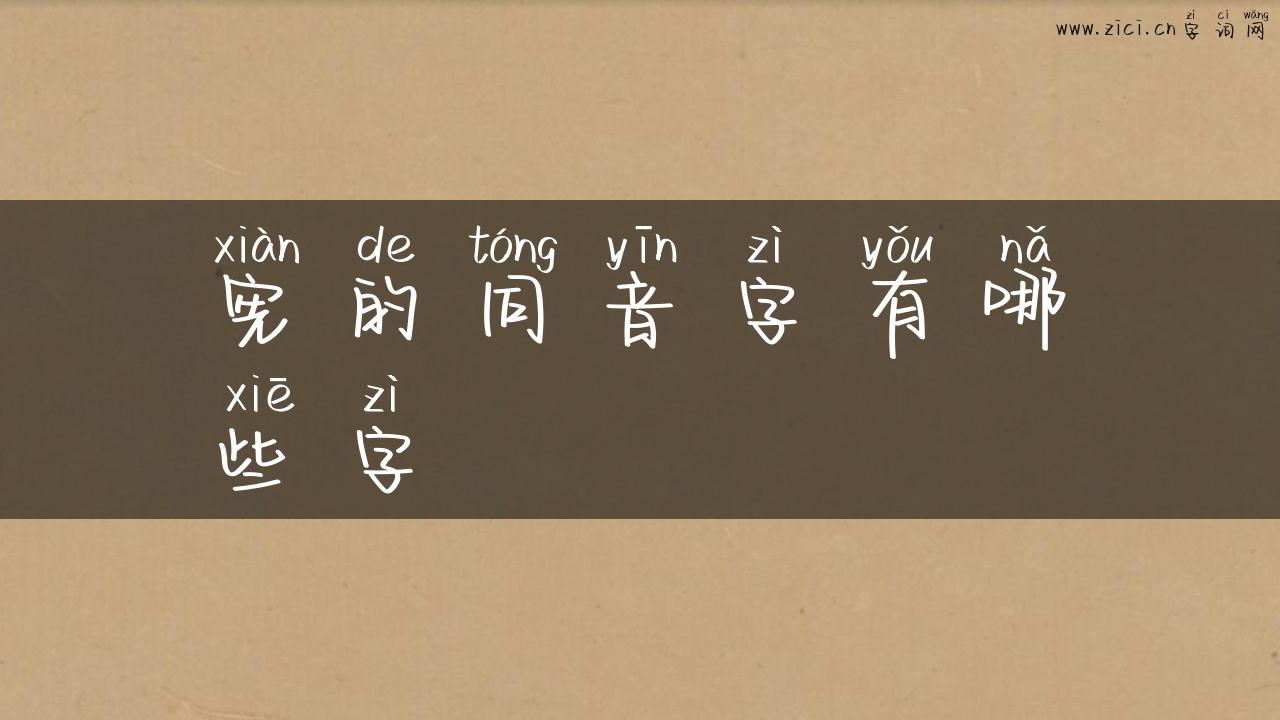 zì cí wǎng
www.zici.cn 字词网
xiàn de tóng yīn zì yǒu nǎ
宪的同音字有哪
xiē zì
些字